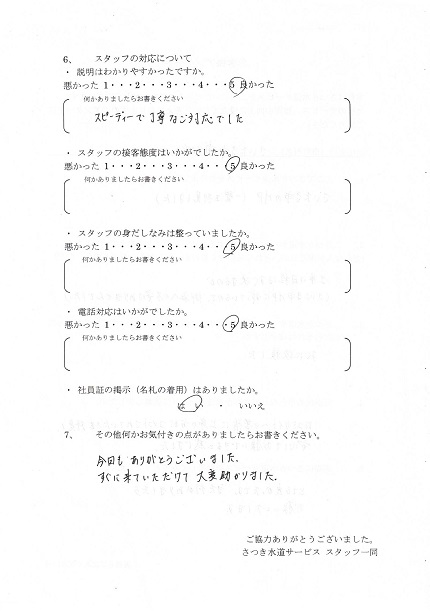 6、 スタッフの対応について
・ 説明はわかりやすかったですか。
悪かった 1・・・2・・・3・・・4・・・5 良かった
何かありましたらお書きください
スピーディーで丁寧なご対応でした
・ スタッフの接客態度はいかがでしたか。
悪かった 1・・・2・・・3・・・4・・・5 良かった
何かありましたらお書きください
・ スタッフの身だしなみは整っていましたか。
悪かった 1・・・2・・・3・・・4・・・5 良かった
何かありましたらお書きください
・ 電話対応はいかがでしたか。
悪かった 1・・・2・・・3・・・4・・・5 良かった
何かありましたらお書きください
・ 社員証の掲示（名札の着用）はありましたか。
はい ・ いいえ
7、 その他何かお気付きの点がありましたらお書きください。
今回も ありがとうございました.
すぐに来ていただけて 大変助かりました.
ご協力ありがとうございました。
さつき水道サービス スタッフ一同